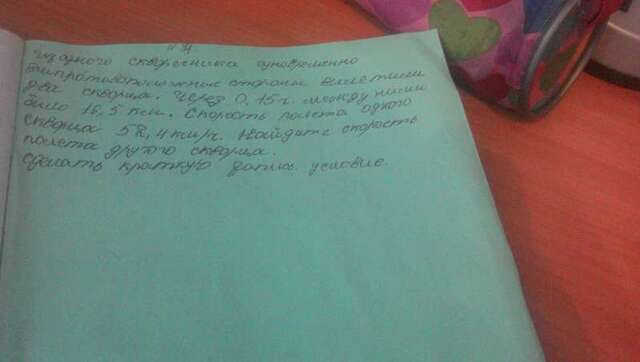 № 4.
из одного скворечника одновременно
в противоположные стороны вылетили
два скворца. Через 0,15 ч. между ними
было 16,5 км. Скорость полета одного
скворца 58,4 км/ч. Найдите скорость
полета другого скворца.
сделать краткую запись условие.